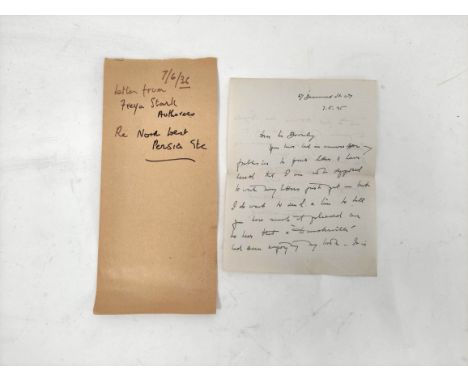 7/6/36
Letter from
Freya Stark
Authoress
Re North West
Persia Etc
7.5.35
You have had an answer from my
publisher to your letter, I have
heard that I am not supposed
to write any letters just yet — but
I do want to send a line to tell
you how much it pleased me
to hear that a
had been enjoying my book